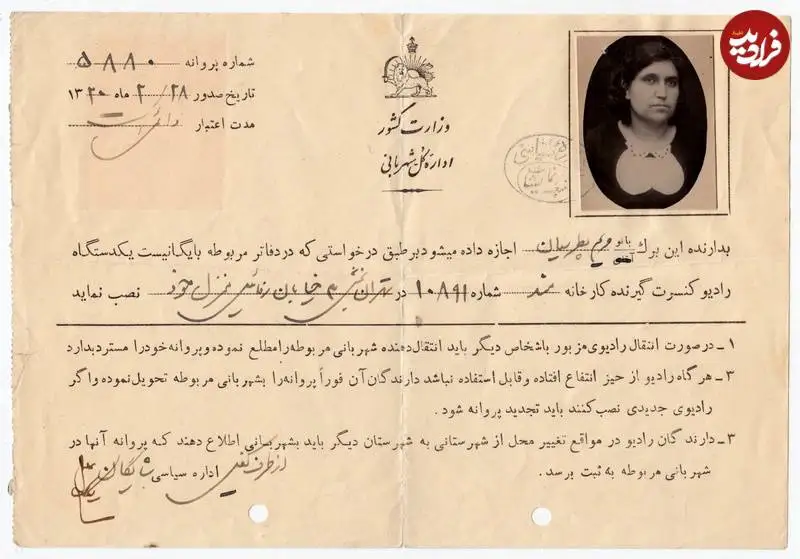 فرادید
شماره پروانه ۵۸۸۰
تاریخ صدور ۲۸ / ۲ ماه ۱۳۲۰
مدت اعتبار
وزارت کشور
اداره کل شهربانی
بدارنده این برك بانو مریم پطرسیان اجازه داده میشود برطبق درخواستی که در دفاتر مربوطه بایگانیست یکدستگاه
رادیو کنسرت گیرنده کارخانه شماره ۱۰۸۹۱ در تهران بخش ۳ خیابان منزل خود نصب نماید
۱ـ در صورت انتقال رادیوی مزبور باشخاص دیگر باید انتقال دهنده شهربانی مربوطه را مطلع نموده و پروانه خود را مسترد بدارد
۳ـ هر گاه رادیو از حیز انتفاع افتاده وقابل استفاده نباشد دارندگان آن فوراً پروانه را بشهربانی مربوطه تحویل نموده و اگر
رادیوی جدیدی نصب کنند باید تجدید پروانه شود .
۳ـ دارند گان رادیو در مواقع تغییر محل از شهرستانی به شهرستان دیگر باید بشهربانی اطلاع دهند که پروانه آنها در
شهربانی مربوطه به ثبت برسد .
از طرف کفیل اداره سیاسی شایگان